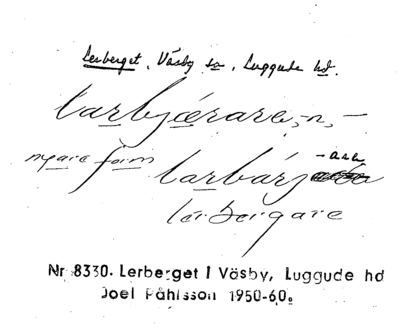 Lerberget, Väsby sn, Luggude hd.
larbjærare, -n, -
nyare form larbárj -are
lerbergare
Nr 8330. Lerberget i Väsby, Luggude hd
Joel Påhlsson 1950-60.